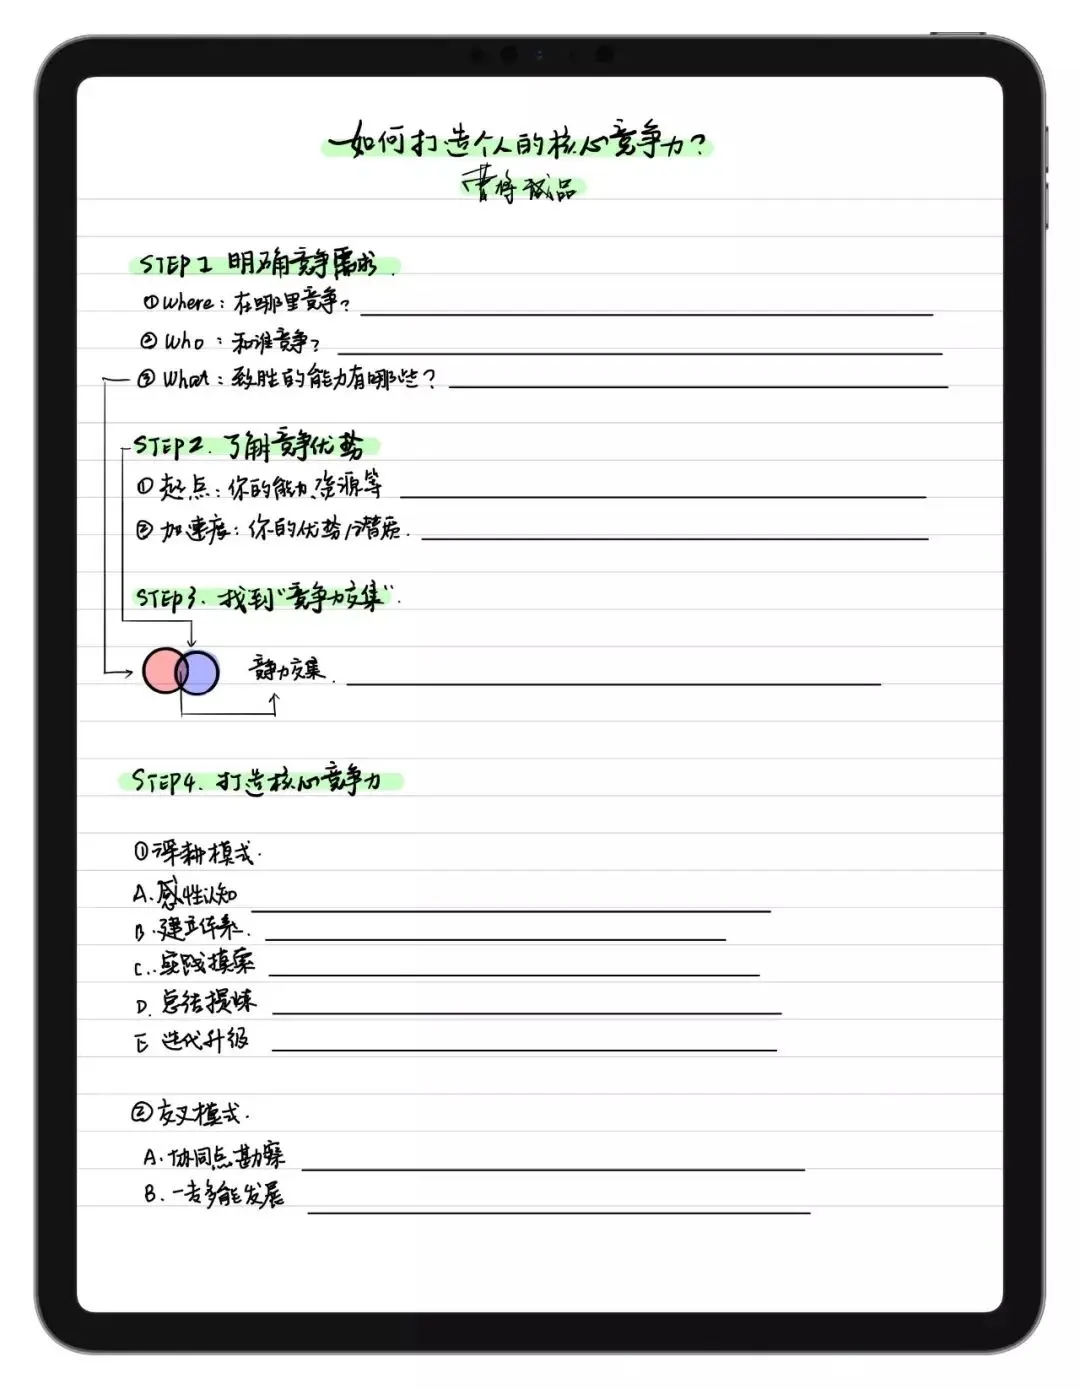 如何打造个人的核心竞争力?
曹将诚品
STEP1 明确竞争需求.
①Where:在哪里竞争?
②Who:和谁竞争?
③What:致胜的能力有哪些?
STEP2.了解竞争优势
①起点:你的能力、资源等
②加速度:你的优势/潜质.
STEP3.找到“竞争力交集”.
竞争力交集.
STEP4.打造核心竞争力
①深耕模式.
A.感性认知
B.建立体系.
C..实践摸索
D.总结提炼
E 迭代升级
②交叉模式.
A.协同点勘察
B.一专多能发展